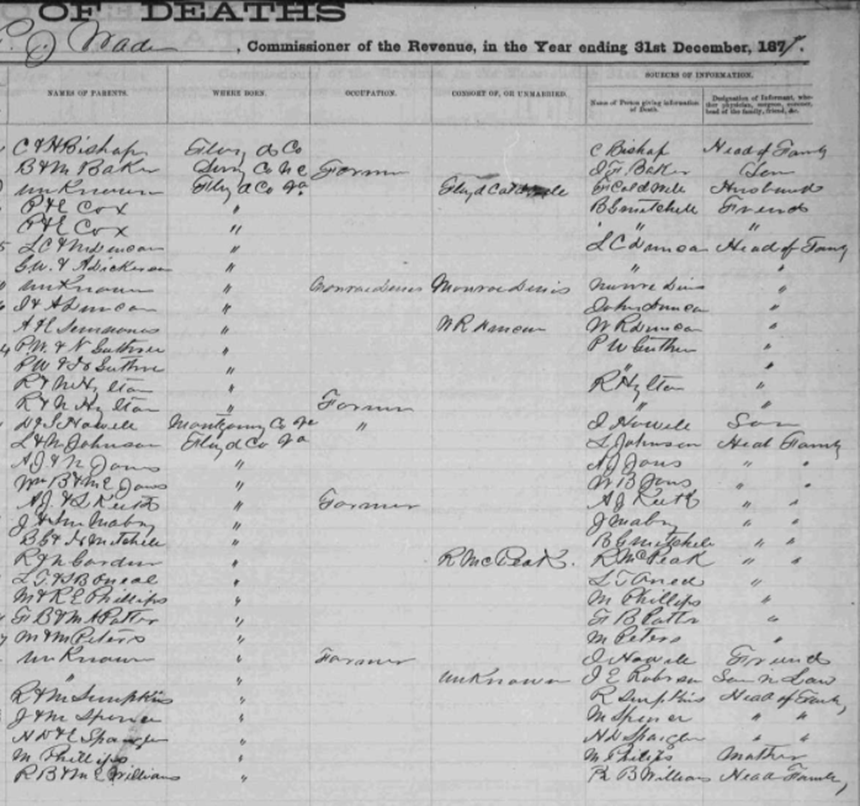 OF DEATHS
Wade, Commissioner of the Revenue, in the Year ending 31st December, 187
SOURCES OF INFORMATION.
NAMES OF PARENTS. WHERE BORN. OCCUPATION. CONSORT OF, OR UNMARRIED. Name of Person giving information of Death. Designation of Informant, whether physician, surgeon, coroner, head of the family, friend, &c.
C & H Bishop Floyd Co C Bishop Head of Family
B & M Baker Surry Co N C Farmer Baker Son
unknown Floyd Co Va Floyd Caldwell Caldwell Husband
P & E Cox " B G Mitchell Friend
P & E Cox " " "
L C & M Duncan " L C Duncan Head of Family
G W. & A Dickerson " " "
unknown " Monroe Dennis "
& A Duncan " John Duncan "
A H Simmons " W R Duncan W R Duncan "
P. W. & N Guthrie " P W Guthrie "
P W & Guthrie " " "
R & N Hylton " R Hylton "
R & N Hylton " Farmer "
Howell Montgomery Co Va " Howell Son
L & N Johnson Floyd Co Va L Johnson Head Family
A J & N Jones " A J Jones " "
Wm B & M E Jones " W B Jones " "
A J. & L Keith " Farmer A J Keith " "
J & Mabry " J Mabry " "
B G & Mitchell " B G Mitchell " "
R & N " R McPeak. R McPeak " "
L T & S B Oneal " L T Oneal "
M & R E Phillips " M Phillips "
B & M A Patter " B Patter "
M & M Peters " M Peters "
unknown " Farmer Howell Friend
" " unknown J E Son N Law
R & M Simpkins " R Simpkins Head of Family
J & M Spencer " M Spencer " "
N D & E Spangler " N D Spangler " "
M Phillips " M Philips Mother
R B & M E Williams " R B Williams Head Family